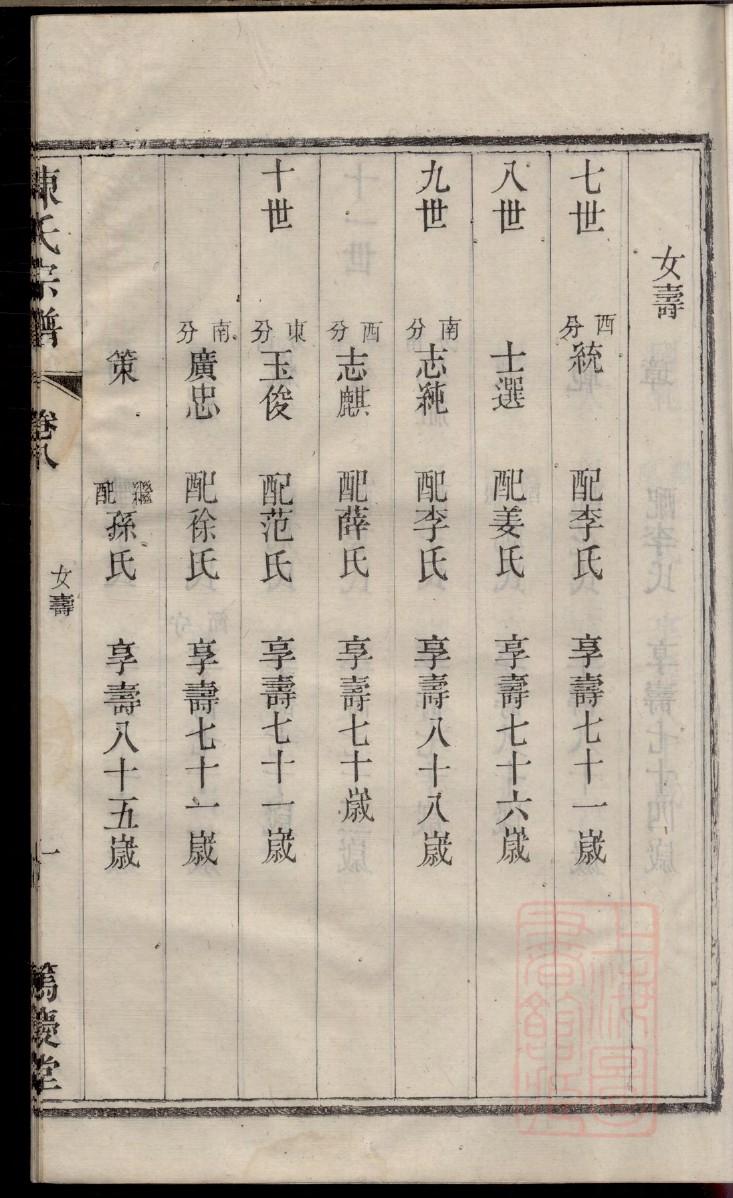 女壽
七世 西分 統 配李氏 享壽七十一歲
八世 士選 配姜氏 享壽七十六歲
九世 南分 志純 配李氏 享壽八十八歲
西分 志麒 配薛氏 享壽七十歲
十世 東分 玉俊 配范氏 享壽七十一歲
南分 廣忠 配徐氏 享壽七十一歲
策 繼配孫氏 享壽八十五歲
陳氏宗譜 卷八 女壽 一 篤慶堂